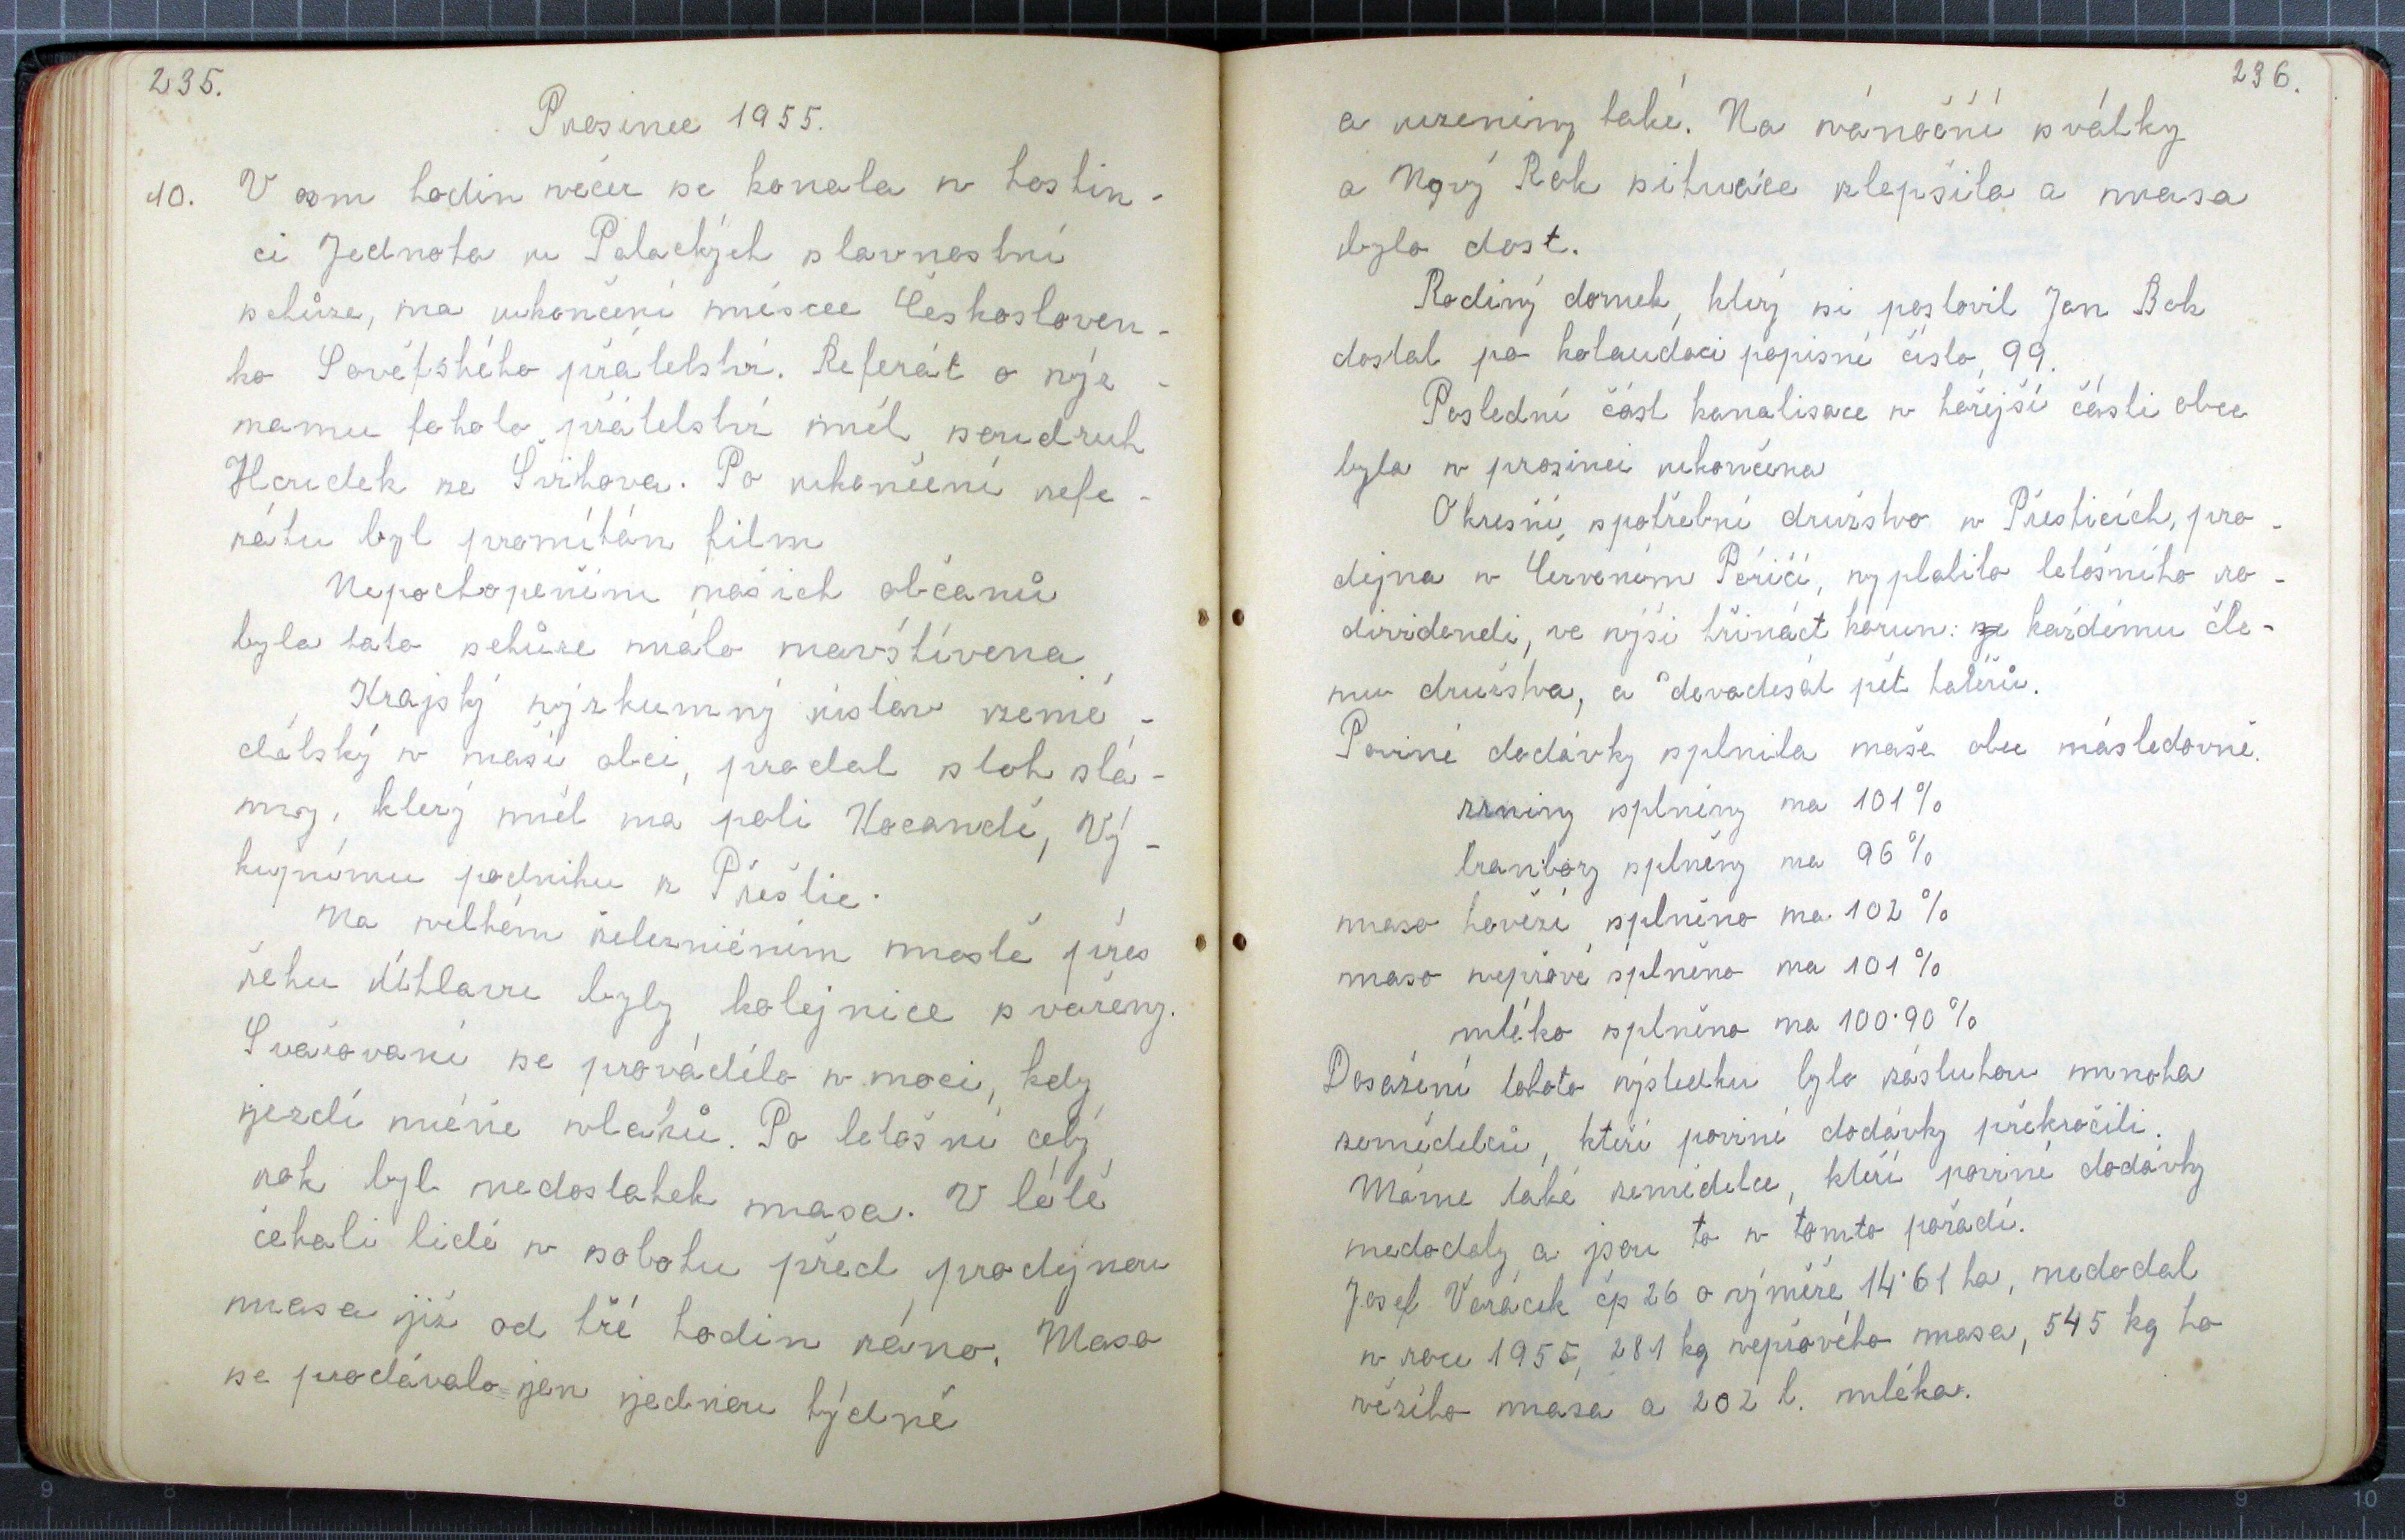 235.
Prosinec 1955.
10. V osm hodin večer se konala v hostin-
ci Jednota u Palackých slavnostní
schůze, na ukončení měsíce Českosloven-
ko Sovětského přátelství. Referát o výz-
namu tohoto přátelství měl soudruh
Houdek ze Švihova. Po ukončení refe-
rátu byl promítán film
Nepochopením našich občanů
byla tato schůze málo navštívena
Krajský výzkumný ústav země-
dělský v naší obci, prodal stoh slá-
my, který měl na poli Kocandě, Vý-
kupnímu podniku z Přeštic.
Na velkém železničním mostě přes
řeku Úhlavu byly kolejnice svařeny.
Svařování se provádělo v noci, kdy
jezdí méně vlaků. Po letošní celý
rok byl nedostatek masa. V létě
čekali lidé v sobotu před prodejnou
masa již od tří hodin ráno. Maso
se prodávalo jen jednou týdně
236.
a uzeniny také. Na vánoční svátky
a Nový Rok situace zlepšila a masa
bylo dost.
Rodiný domek, který si postavil Jan Bok
dostal po kolaudaci popisné číslo 99.
Poslední část kanalisace v hořejší části obce
byla v prosinci ukončena
Okresní spotřební družstvo v Přešticích, pro-
dejna v Červeném Poříčí, vyplatilo letošního ro-
dividendi, ve výši třináct korun: každému čle-
nu družstva, a devadesát pět haléřů.
Poviné dodávky splnila naše obec následovně.
zrniny splněny na 101%
brambory splněny na 96%
maso hovězí splněno na 102%
maso vepřové splněno na 101%
mléko splněno na 100·90%
Dosažení tohoto výsledku bylo zásluhou mnoha
zemědělců, kteří poviné dodávky překročili.
Máme také zemědělce, kteří poviné dodávky
nedodaly a jsou to v tomto pořadí.
Josef Voráček čp 26 o výměře 14·61 ha, nedodal
v roce 1955, 281 kg vepřového masa, 545 kg ho
vězího masa a 202 l. mléka.